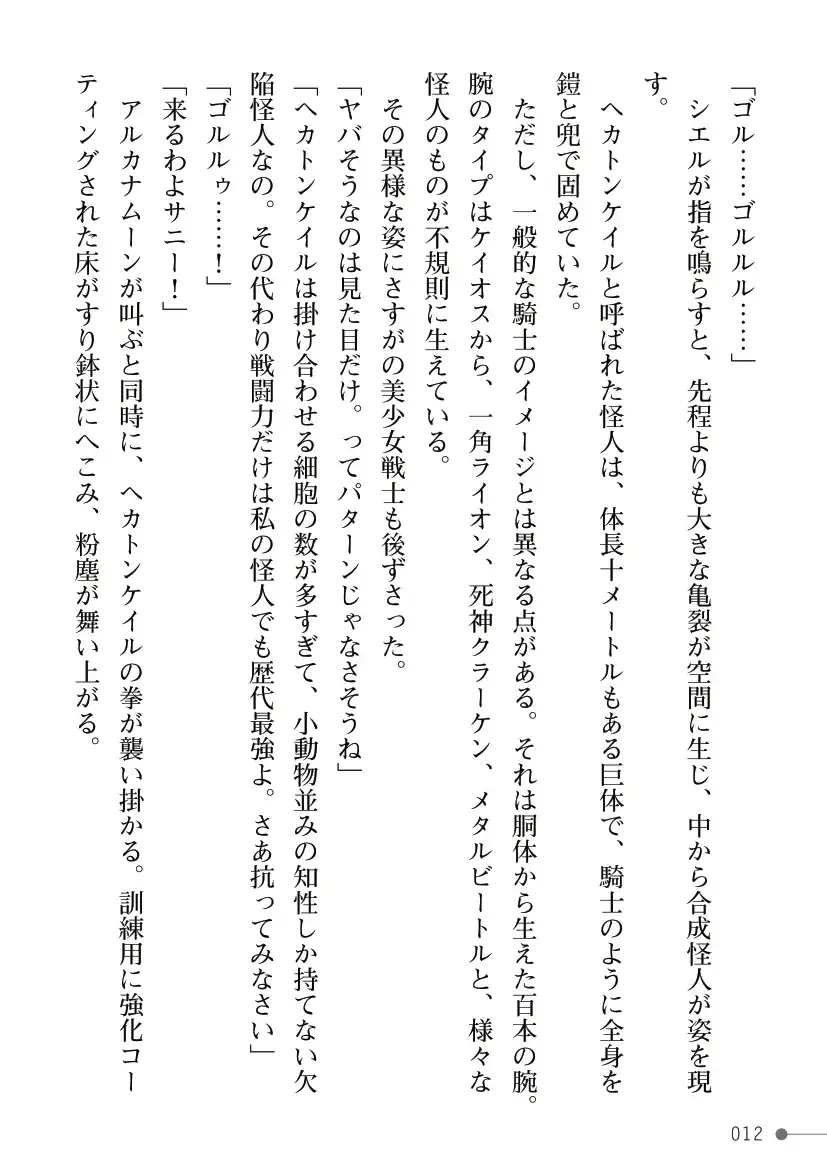 「ゴル……ゴルルル……」
　シエルが指を鳴らすと、先程よりも大きな亀裂が空間に生じ、中から合成怪人が姿を現
す。
　ヘカトンケイルと呼ばれた怪人は、体長十メートルもある巨体で、騎士のように全身を
鎧と兜で固めていた。
　ただし、一般的な騎士のイメージとは異なる点がある。それは胴体から生えた百本の腕。
腕のタイプはケイオスから、一角ライオン、死神クラーケン、メタルビートルと、様々な
怪人のものが不規則に生えている。
　その異様な姿にさすがの美少女戦士も後ずさった。
「ヤバそうなのは見た目だけ。ってパターンじゃなさそうね」
「ヘカトンケイルは掛け合わせる細胞の数が多すぎて、小動物並みの知性しか持てない欠
陥怪人なの。その代わり戦闘力だけは私の怪人でも歴代最強よ。さあ抗ってみなさい」
「ゴルルゥ……！」
「来るわよサニー！」
　アルカナムーンが叫ぶと同時に、ヘカトンケイルの拳が襲い掛かる。訓練用に強化コー
ティングされた床がすり鉢状にへこみ、粉塵が舞い上がる。
012